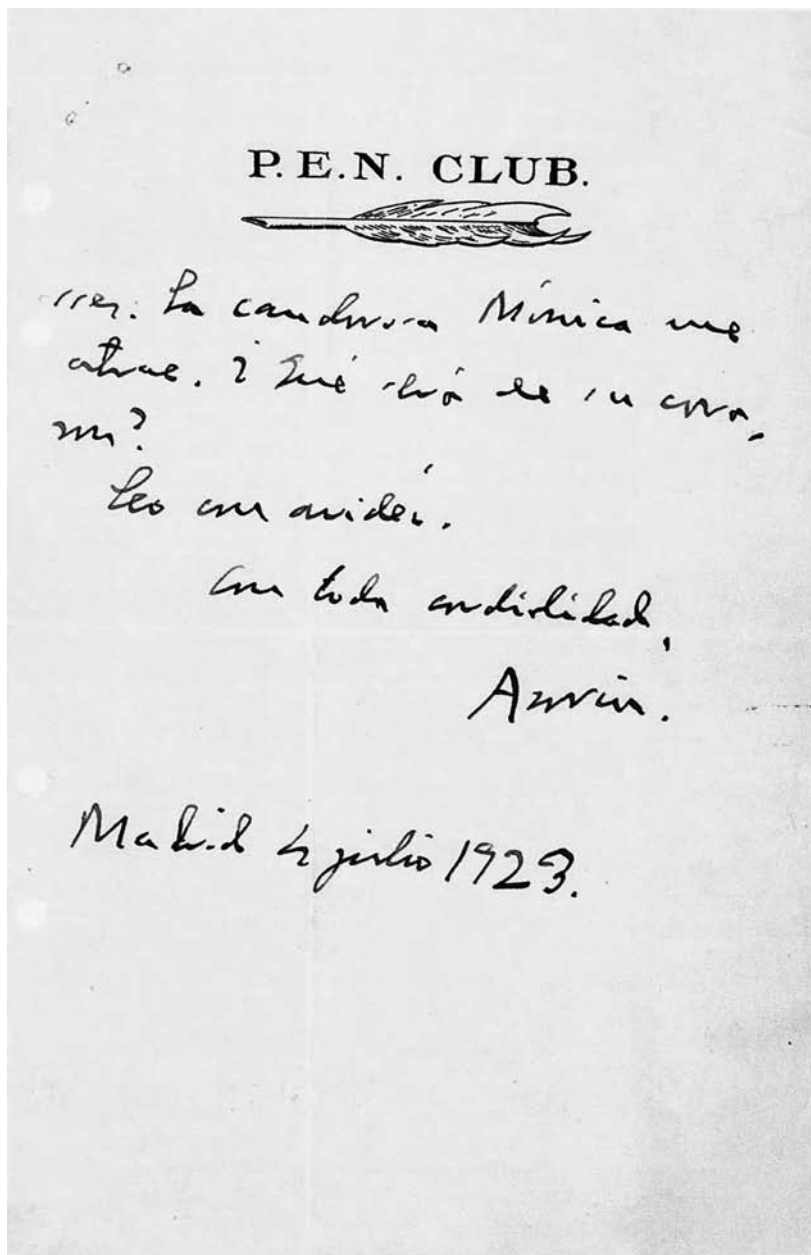 P.E.N. CLUB.
La candorosa Mónica me
atrae. ¿Qué será de su cora-
zón?
Leo con avidez.
Con toda cordialidad,
Azorín.
Madrid 4 julio 1923.